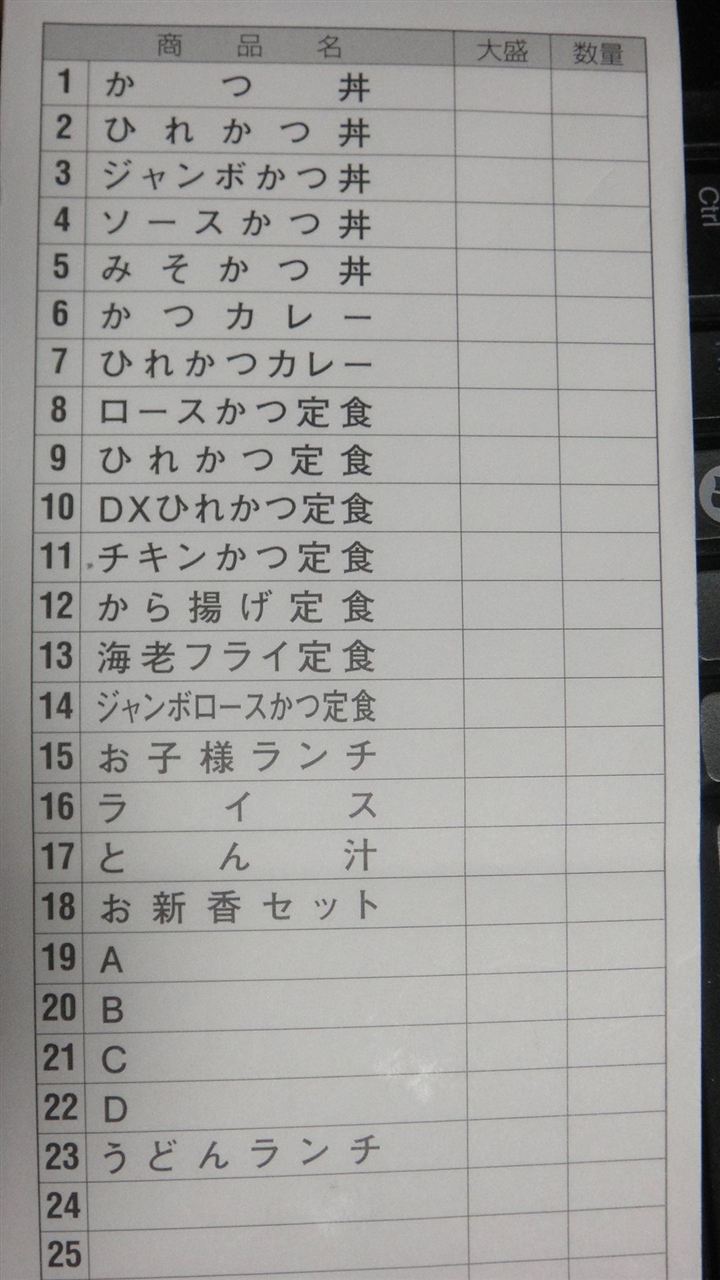 商品名 大盛 数量
1 かつ丼
2 ひれかつ丼
3 ジャンボかつ丼
4 ソースかつ丼
5 みそかつ丼
6 かつカレー
7 ひれかつカレー
8 ロースかつ定食
9 ひれかつ定食
10 DXひれかつ定食
11 チキンかつ定食
12 から揚げ定食
13 海老フライ定食
14 ジャンボロースかつ定食
15 お子様ランチ
16 ライス
17 とん汁
18 お新香セット
19 A
20 B
21 C
22 D
23 うどんランチ
24
25
Ctrl